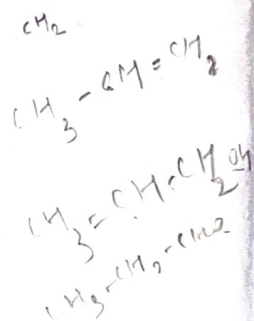 CH2
CH3 - CH = CH2
CH3 = CH - CH2 OH
CH3 - CH2 - CHO